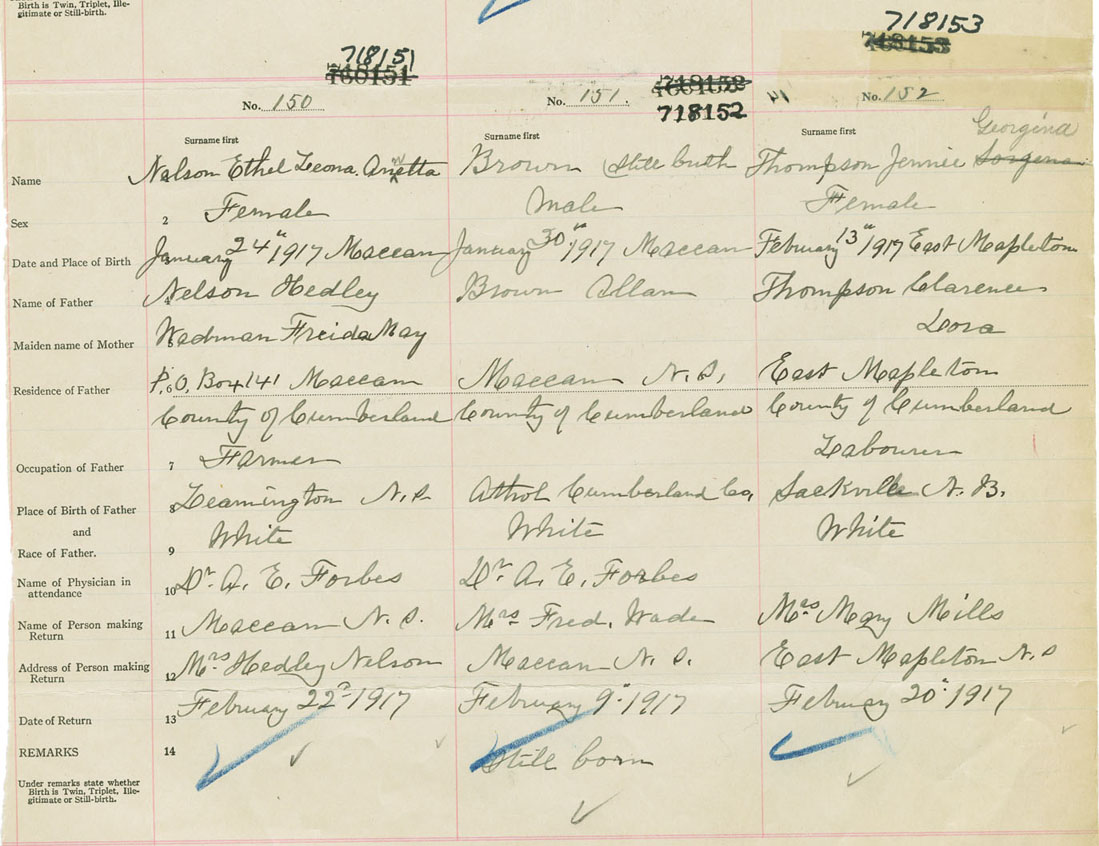 Birth is Twin, Triplet, Ille-
gitimate or Still-birth.
718151 718153
760151 718153
No. 150 No. 151. 718152 No. 152
718152
Surname first Surname first Surname first Georgina
Name Nelson Ethel Leona Anetta Brown still birth Thompson Jennie
Sex 2 Female Male Female
Date and Place of Birth January 24" 1917 Maccan January 30" 1917 Maccan February 13" 1917 East Mapleton
Name of Father Nelson Hedley Brown Allan Thompson Clarence
Maiden name of Mother Wadman Freida May Leora
Residence of Father P.O. Box 141 Maccan Maccan N.S. East Mapleton
County of Cumberland County of Cumberland County of Cumberland
Occupation of Father 7 Farmer Labourer
Place of Birth of Father 8 Leamington N.S. Athol Cumberland Co, Sackville N.B.
and White White White
Race of Father. 9
Name of Physician in attendance 10 Dr. A. E. Forbes Dr. A. E. Forbes
Name of Person making Return 11 Maccan N.S. Mrs. Fred. Wade Mrs Mary Mills
Address of Person making Return 12 Mrs Hedley Nelson Maccan N.S. East Mapleton N.S
Date of Return 13 February 22 1917 February 9" 1917 February 20" 1917
REMARKS 14 Still born
Under remarks state whether
Birth is Twin, Triplet, Ille-
gitimate or Still-birth.